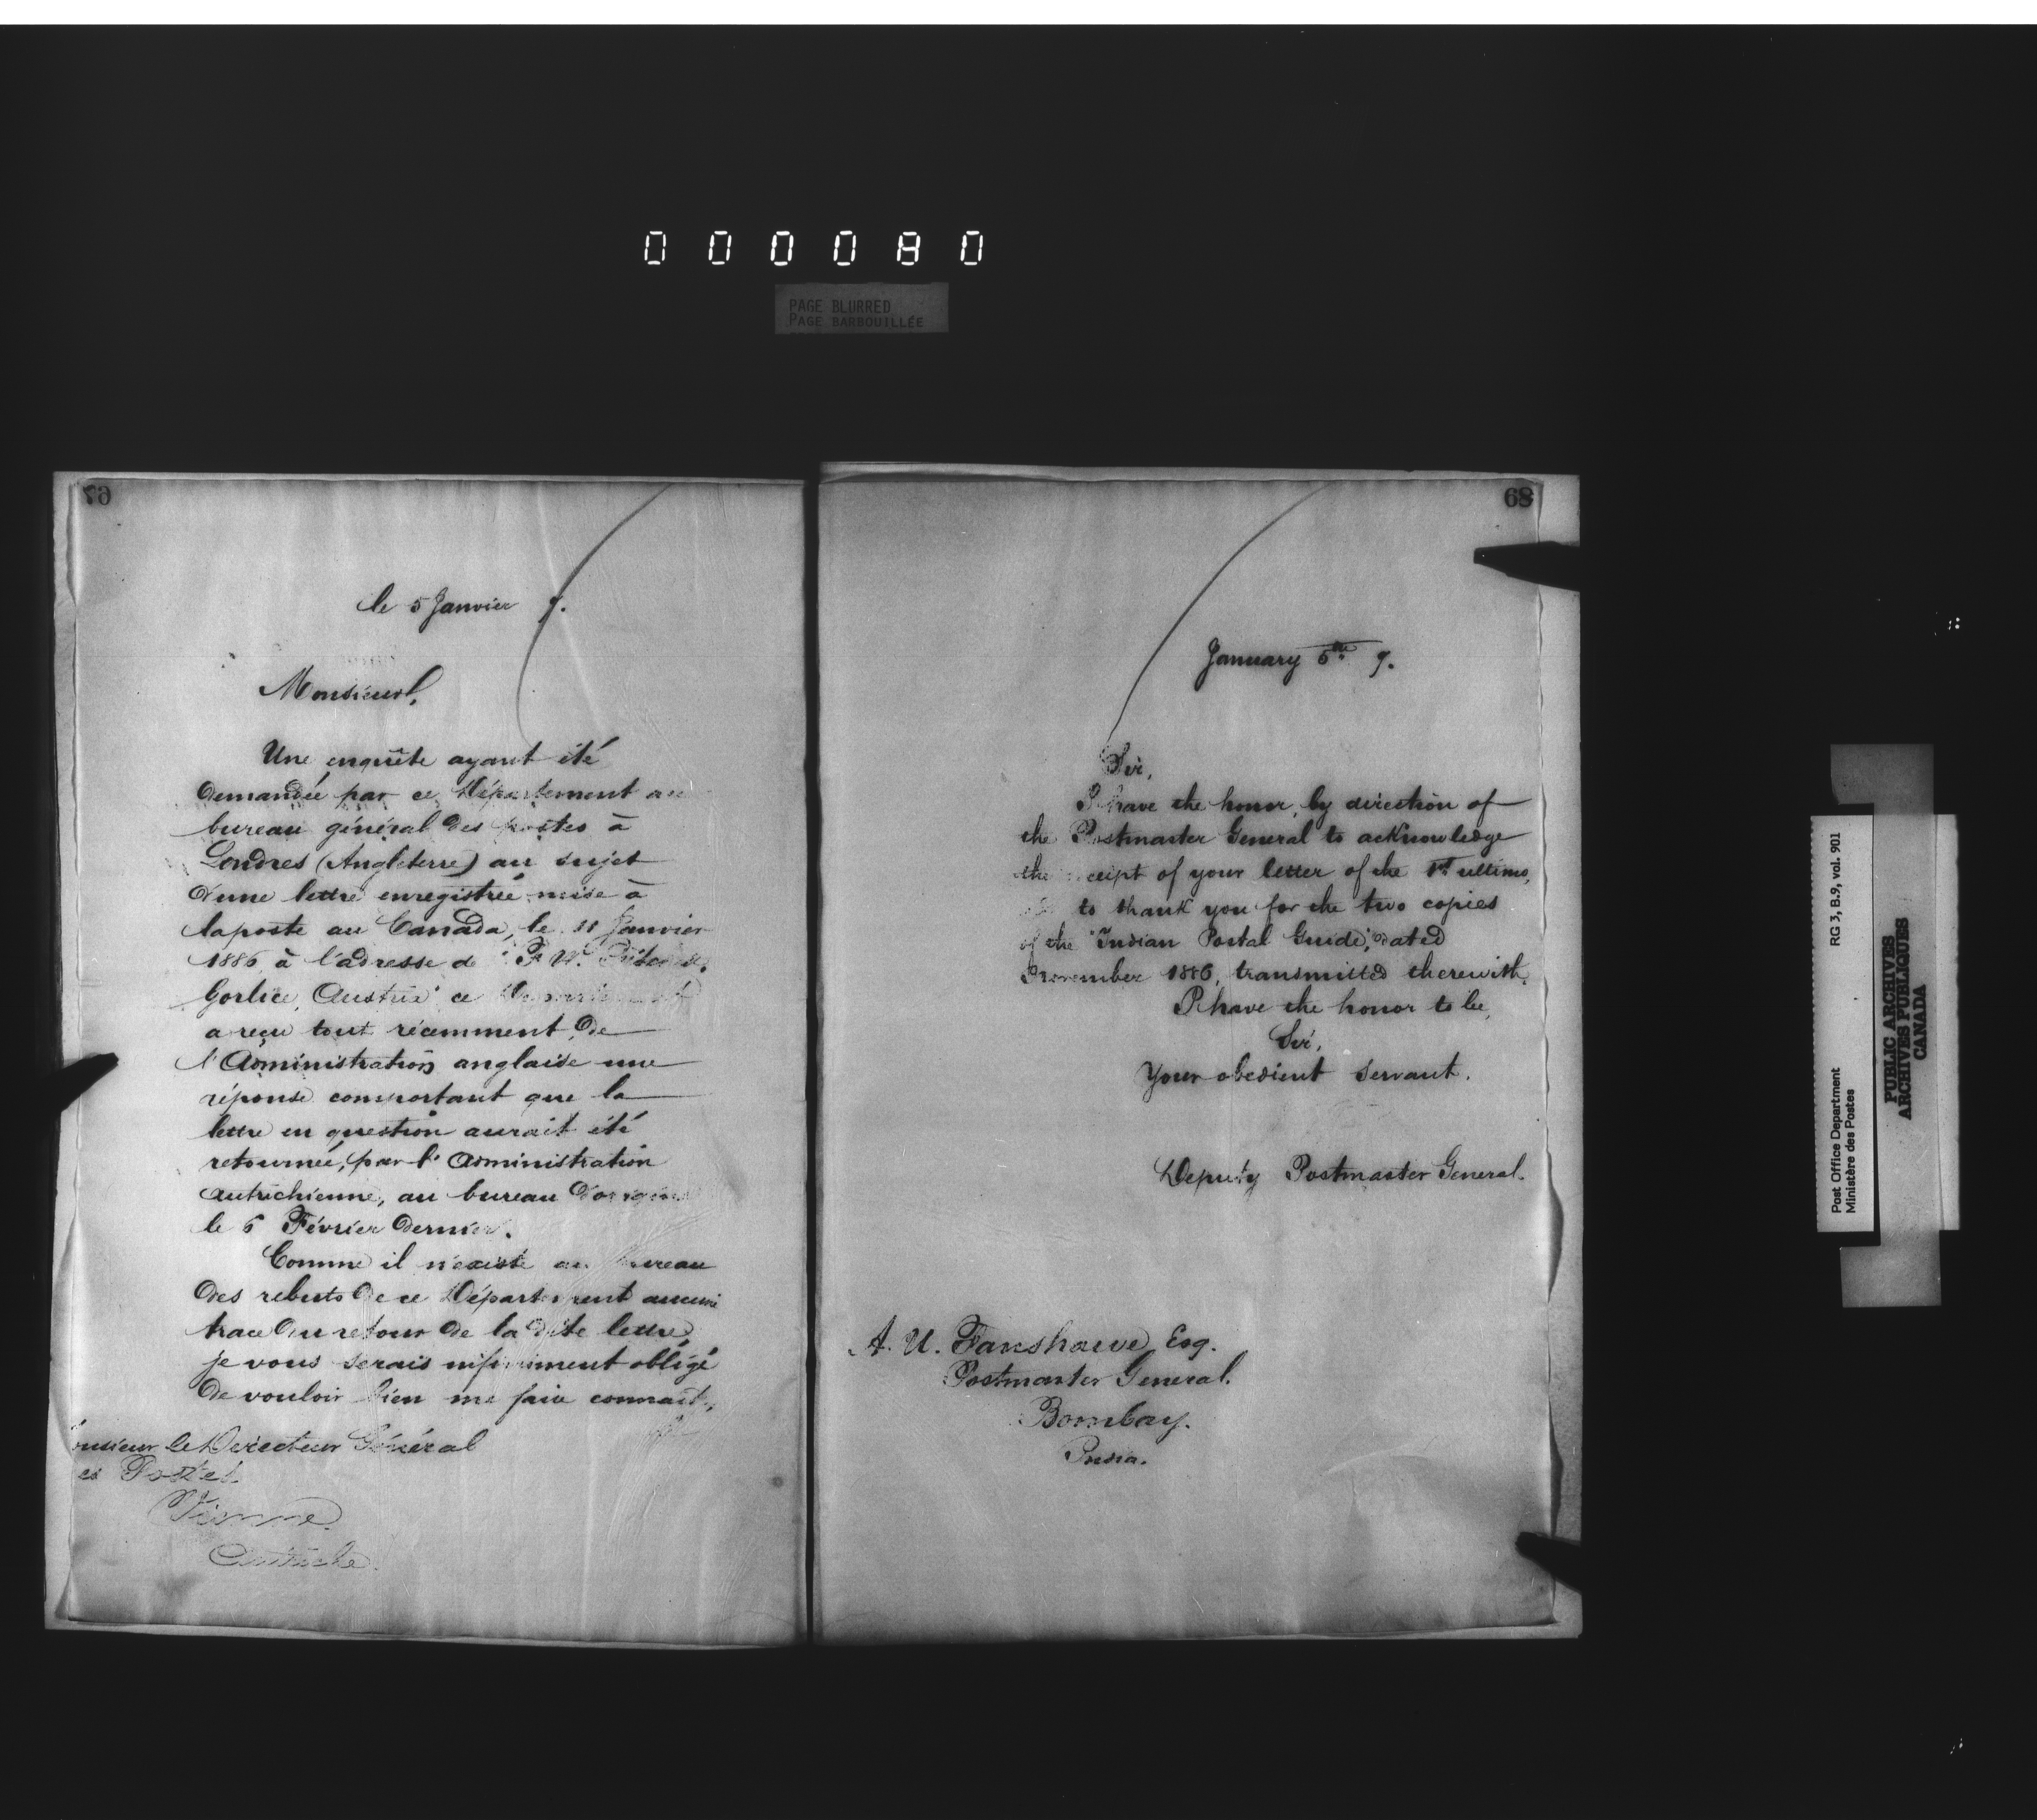 000080
PAGE BLURRED
PAGE BARBOUILLÉE
le 5 Janvier 7.
Monsieur,
Une enquête ayant été
demandée par ce Département au
bureau général des postes à
Londres (Angleterre) au sujet
d'une lettre enregistrée mise à
la poste au Canada, le 11 Janvier
1886 à l'adresse de "F. W.
Gorlice, Austria" ce Département
a reçu tout récemment de
l'Administration anglaise une
réponse comportant que la
lettre en question aurait été
retournée, par l'Administration
autrichienne, au bureau d'origine
le 6 Février dernier.
Comme il n'existe au bureau
des rebuts de ce Département aucune
trace du retour de la dite lettre,
je vous serais infiniment obligé
de vouloir bien me faire connait
onsieur le Directeur Général
es Postes.
Vienne.
Autriche.
68
January 5th 7.
Sir,
I have the honor, by direction of
the Postmaster General to acknowledge
the receipt of your letter of the 1st ultimo,
to thank you for the two copies
of the "Indian Postal Guide," dated
November 1886, transmitted therewith.
I have the honor to be,
Sir,
Your obedient servant.
Deputy Postmaster General.
A. U. Fanshawe, Esq.
Postmaster General.
Bombay.
India.
Post Office Department
Ministère des Postes
RG 3, B.9, vol. 901
PUBLIC ARCHIVES
ARCHIVES PUBLIQUES
CANADA